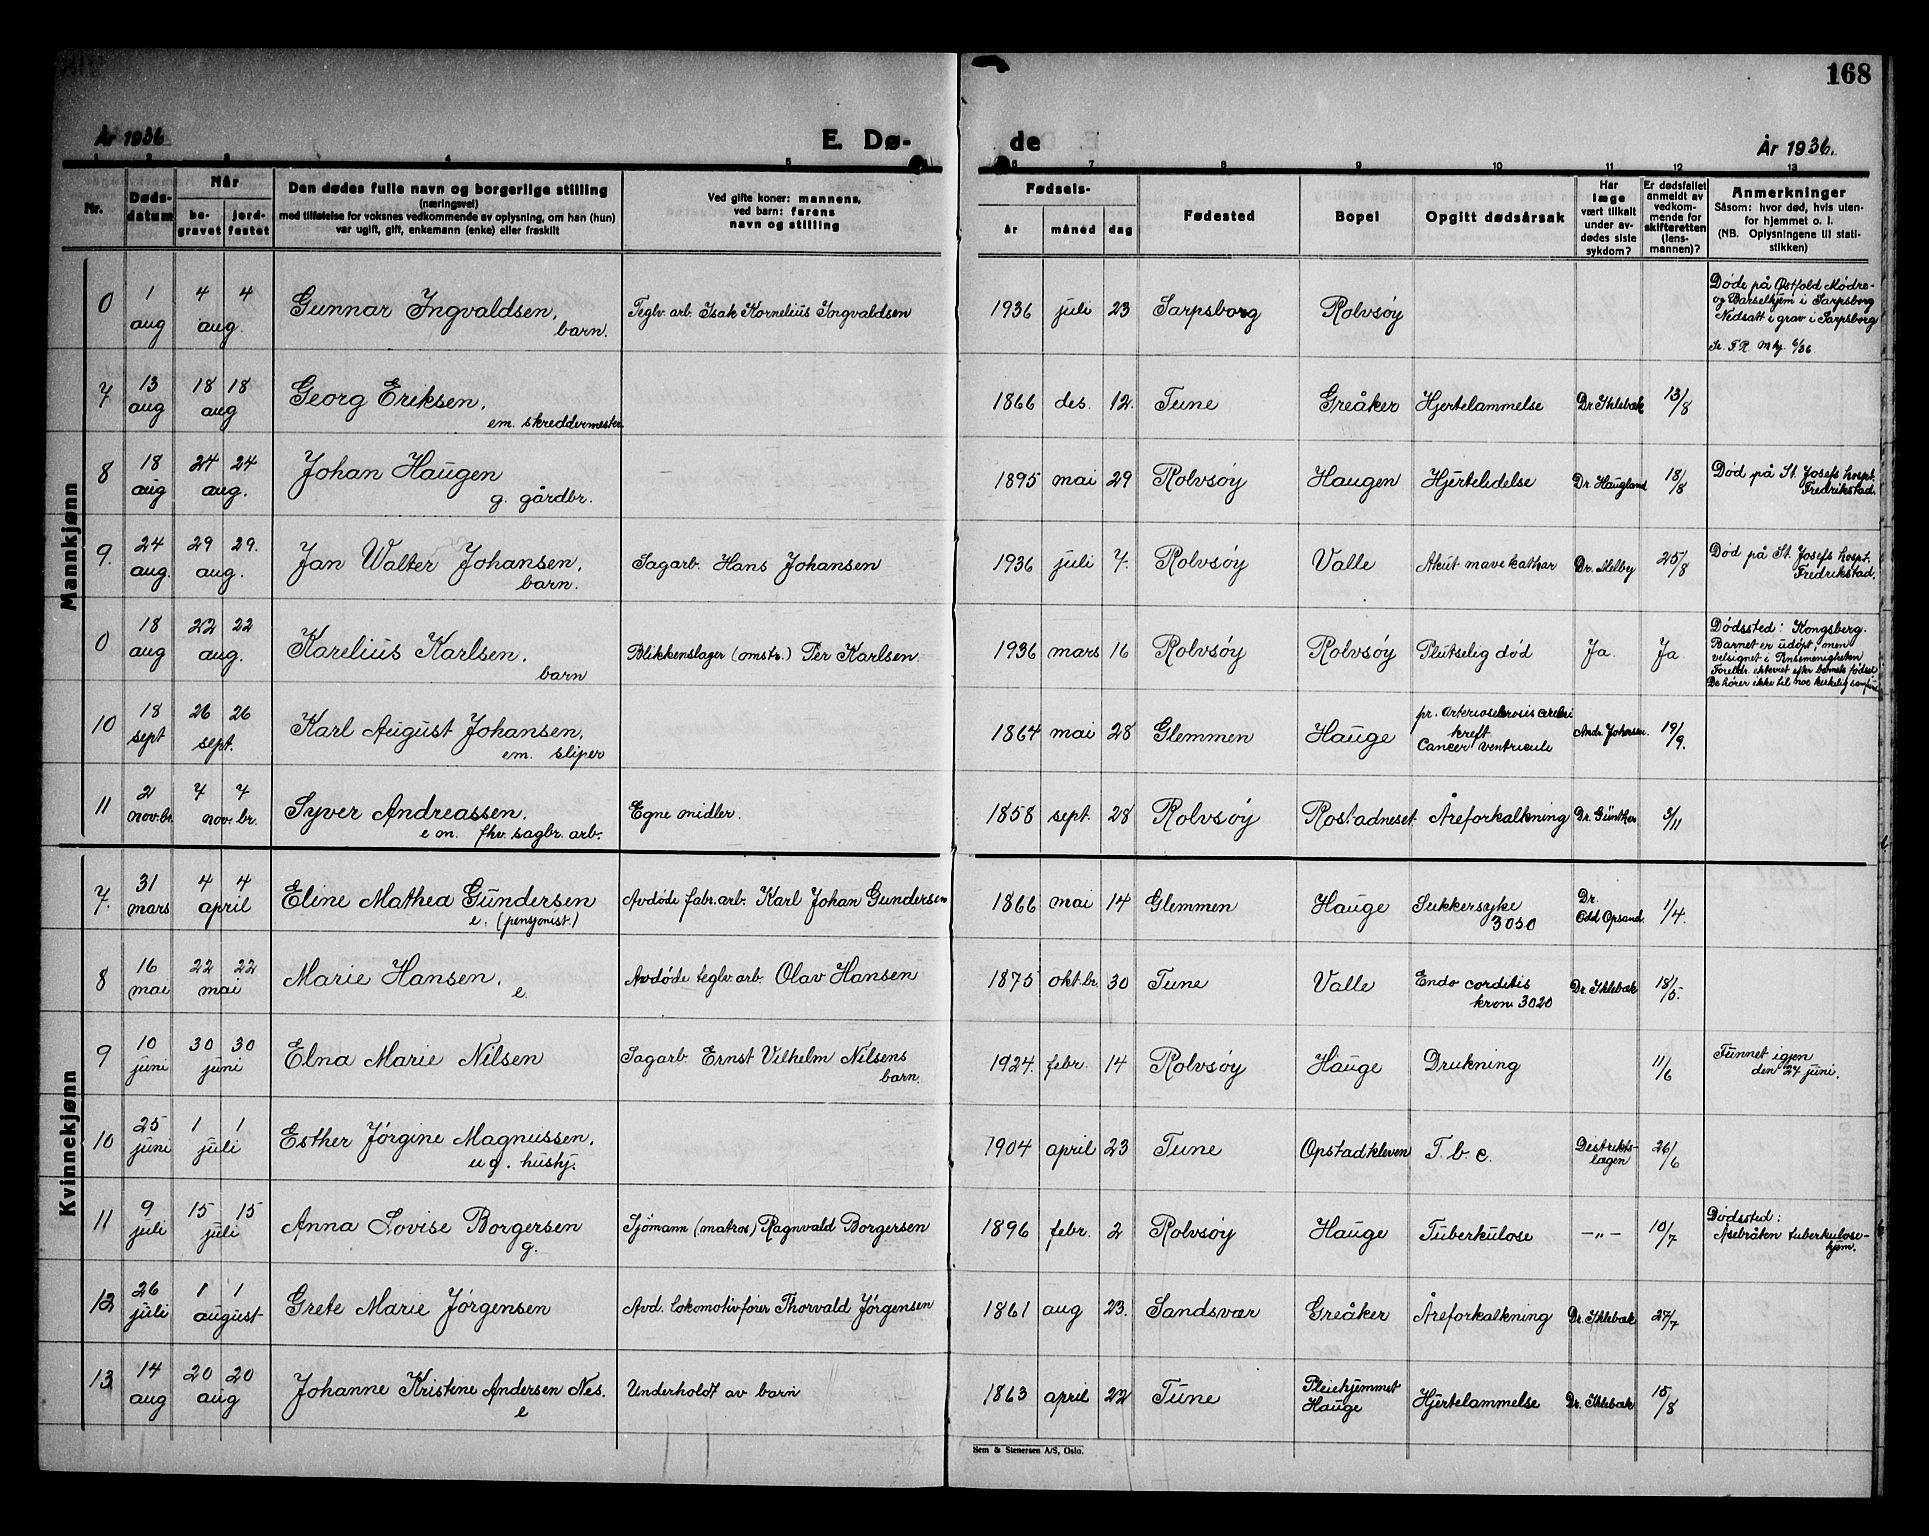 168
År 1936
E. Dø-
de
År 1936.
1 2 3 4 5 6 7 8 9 10 11 12 13
Nr.
Døds-
datum
Når
be-
gravet
jord-
festet
Den dødes fulle navn og borgerlige stilling
(næringsvei)
med tilføielse for voksnes vedkommende av oplysning, om han (hun)
var ugift, gift, enkemann (enke) eller fraskilt
Ved gifte koner: mannens,
ved barn: farens
navn og stilling
Fødsels-
år
måned
dag
Fødested
Bopel
Opgitt dødsårsak
Har
læge
vært tilkalt
under av-
dødes siste
sykdom?
Er dødsfallet
anmeldt av
vedkom-
mende for
skifteretten
(lens-
mannen)?
Anmerkninger
Såsom: hvor død, hvis uten-
for hjemmet o. l.
(NB. Oplysningene til stati-
stikken)
Mannkjønn
0 1 aug 4 4 aug. Gunnar Ingvaldsen, barn. Teglv. arb. Isak Kornelius Ingvaldsen 1936 juli 23 Sarpsborg Rolvsøy
Døde på Østfold Mødre-
og Barselhjem i Sarpsborg
Nedsatt i grav i Sarpsborg
7 13 aug 18 18 aug Georg Eriksen, em. skreddermester. 1866 des. 12. Tune Greåker Hjertelammelse Dr. Ihlebæk 13/8
8 18 aug 24 24 aug. Johan Haugen g. gårdbr. 1895 mai 29 Rolvsøy Haugen Hjertelidelse Dr. Haugland 18/8
Død på St. Josefs hospt.
Fredrikstad.
9. 24 aug. 29 29. aug. Jan Walter Johansen, barn. Sagarb. Hans Johansen 1936 juli 7. Rolvsøy Valle Akut mavekathar Dr. Melby 25/8
Død på St. Josefs hospt.
Fredrikstad.
0 18 aug 22 22 aug. Karelius Karlsen, barn Blikkenslager (omstr.) Per Karlsen. 1936 mars 16 Rolvsøy Rolvsøy Plutselig død Ja Ja
Dødssted: Kongsberg.
Barnet er udøpt, men
velsignet i Pinsemenigheten
Foreldr. ekteviet efter barnets fødsel
De hører ikke til noe kirkelig samfund
10 18 sept 26 26 sept. Karl August Johansen, em. sliper 1864 mai 28 Glemmen Hauge pr. arteriosclerosis cerebri kreft Cancer ventriculi Andr. Johnsen. 19/9.
11 2 nov.br. 7 7 nov. br. Syver Andreassen, e m. fhv. sagbr. arb. Egne midler. 1858 sept. 28 Rolvsøy Rostadneset. Åreforkalkning Dr. Günther 3/11
Kvinnekjønn
7. 31 mars 4 4 april Eline Mathea Gundersen e. (pensjonist.) Avdøde fabr. arb. Karl Johan Gundersen 1866 mai 14 Glemmen Hauge Sukkersyke 3050 Dr. Odd Opsand. 1/4.
8 16 mai 22 22 mai Marie Hansen, e. Avdøde teglv. arb. Olav Hansen 1875 okt. br. 30 Tune Valle Endo corditis kron. 3020 Dr. Ihlebæk 18/5.
9 10 juni 30 30 juni Elna Marie Nilsen Sagarb. Ernst Vilhelm Nilsens barn. 1924. febr. 14 Rolvsøy Hauge Drukning 11/6
Funnet igjen
den 24 juni.
10 25 juni 1 1 juli Esther Jørgine Magnussen, ug. hushj. 1904 april 23 Tune Opstadkleven T. b. c. Destrikts-lægen 26/6
11 9 juli 15 15 juli Anna Lovise Borgersen g. Sjömann (matros) Ragnvald Borgersen 1896 febr. 2 Rolvsøy Hauge Tuberkulose —„— 10/7
Dødssted:
Åsebråten tuberkulose-
hjem.
12 26 juli 1 1 august Grete Marie Jørgensen Avd. lokomotivfører Thorvald Jørgensen 1861 aug 23. Sandsvær Greåker Åreforkalkning Dr. Ihlebæk 27/7
13 14 aug 20 20 aug Johanne Kristine Andersen Nes. e Underholdt av barn 1863 april 22 Tune Pleiehjemmet Hauge Hjertelammelse Dr. Ihlebæk 15/8
Sem & Stenersen A/S, Oslo.